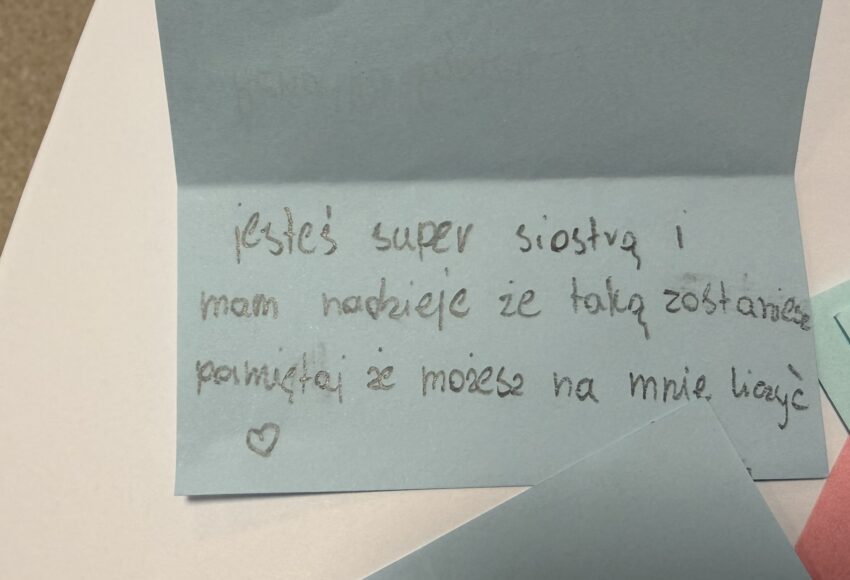 jesteś super siostrą i
mam nadzieje że taką zostaniesz
pamiętaj że możesz na mnie liczyć
♡